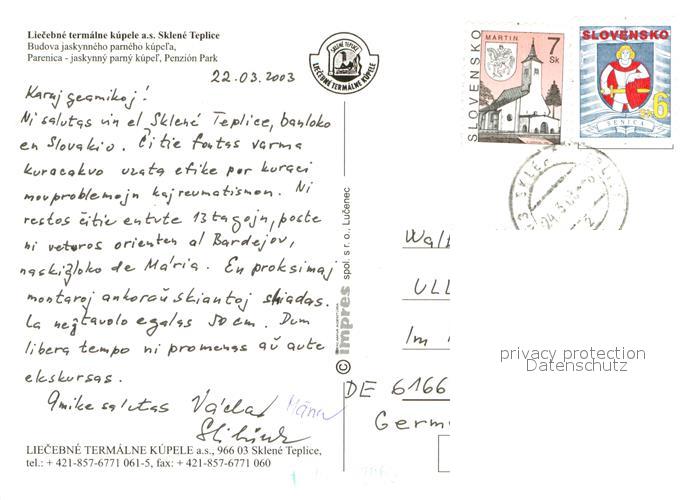 Liečebné termálne kúpele a.s. Sklené Teplice
Budova jaskynného parného kúpeľa,
Parenica - jaskynný parný kúpeľ, Penzión Park
SKLENÉ TEPLICE
LIEČEBNÉ TERMÁLNE KÚPELE
22.03.2003
Karaj geamikoj!
Ni salutas vin el Sklené Teplice, banloko
en Slovakio. Ĉi tie fontas varma
kuracakvo uzata efike por kuraci
movproblemojn kaj reumatismon. Ni
restos ĉi tie entute 13 tagojn, poste
ni veturos orienten al Bardejov,
naskiĝloko de Mária. En proksimaj
montaroj ankoraŭ skiantoj skiadas.
La neĝtavolo egalas 50 cm. Dum
libera tempo ni promenas aŭ aŭte
ekskursas.
Amike salutas Václav Mária
LIEČEBNÉ TERMÁLNE KÚPELE a.s., 966 03 Sklené Teplice,
tel.: + 421-857-6771 061-5, fax: + 421-857-6771 060
© impres spol. s r. o., Lučenec
SLOVENSKO
MARTIN
7
Sk
SLOVENSKO
SENICA
Sk 6
ULL
Im
DE 6166
Germ
privacy protection
Datenschutz